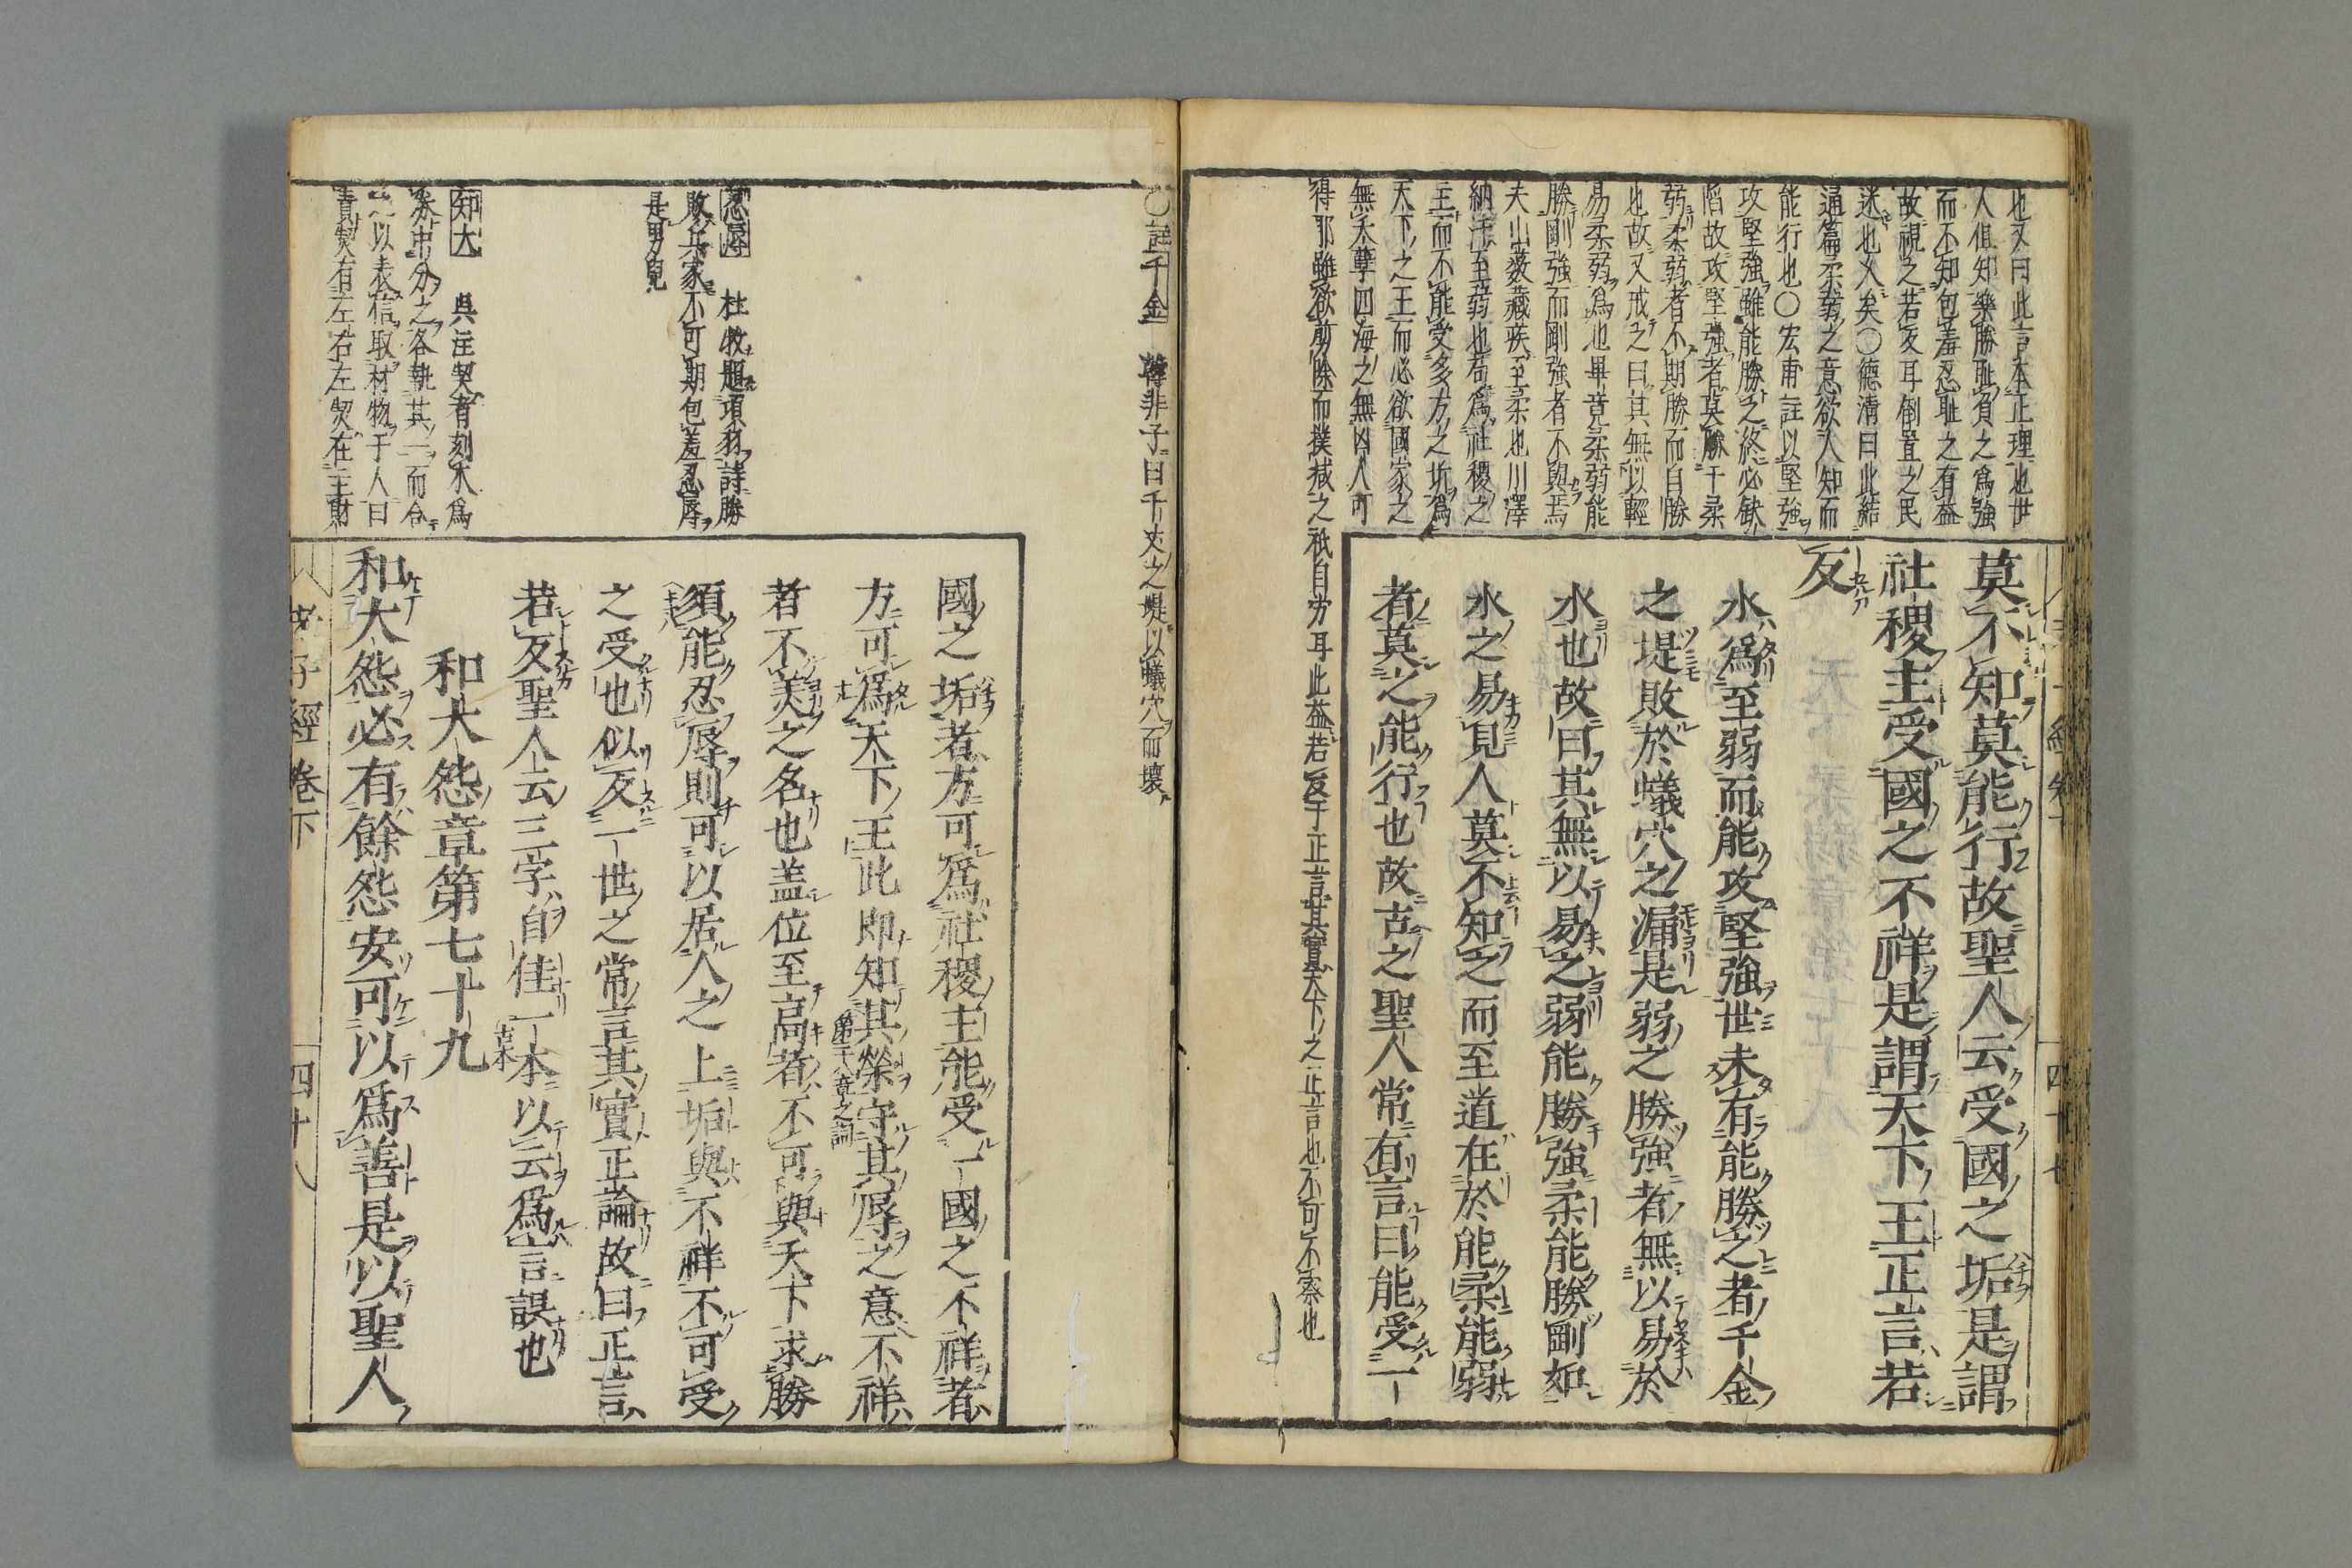 也又曰此言本正理也世
人但知樂勝耻負之爲強
而不知包羞忍耻之有益
故視之若反耳倒置之民
迷也乆矣○德清曰此結
通篇柔弱之意欲人知而
能行也○宏甫註以堅強
攻堅強雖能勝之終必缺
陷故攻堅強者莫勝于柔
弱柔弱者不期勝而自勝
也故又戒之曰其無以輕
易柔弱爲也畢竟柔弱能
勝剛強而剛強者不與焉
夫山薮藏疾至柔也川澤
納汚至弱也苟爲社稷之
主而不能受多方之垢爲
天下之王而必欲國家之
無夭孽四海之無凶人可
得耶雖欲剪除而撲滅之祇自労耳此益若反于正言其實天下之正言也不可不察也
莫不知莫能行故聖人云受國之垢是謂
社稷主受國之不祥是謂天下王正言若
反
水爲至弱而能攻堅強世未有能勝之者千金
之堤敗於蟻穴之漏是弱之勝強者無以易於
水也故曰其無以易之弱能勝強柔能勝剛如
水之易見人莫不知之而至道在於能柔能弱
者莫之能行也故古之聖人常有言曰能受一
四十七
○註千金 韓非子曰千丈之堤以蟻穴而壞
忍辱 杜牧題項羽詩勝
敗兵家不可期包羞忍辱
是男兒
知大 吳注契者刻木爲
券中分之各執其一而合
之以表信取材物于人曰
責契有左右左契在主財
國之垢者方可爲社稷主能受一國之不祥者
方可爲天下王此即知其榮守其辱之意不祥
第二十八章之詞
者不美之名也盖位至高者不可與天下求勝
須能忍辱則可以居人之上垢與不祥不可受
之受也似反一世之常言其實正論故曰正言
若反聖人云三字自佳一本以云爲言誤也
古本
和大怨章第七十九
和大怨必有餘怨安可以爲善是以聖人
老子經 卷下
四十八